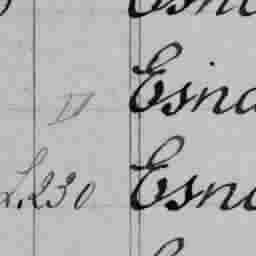 Esna
D Esna
L.230 Esna